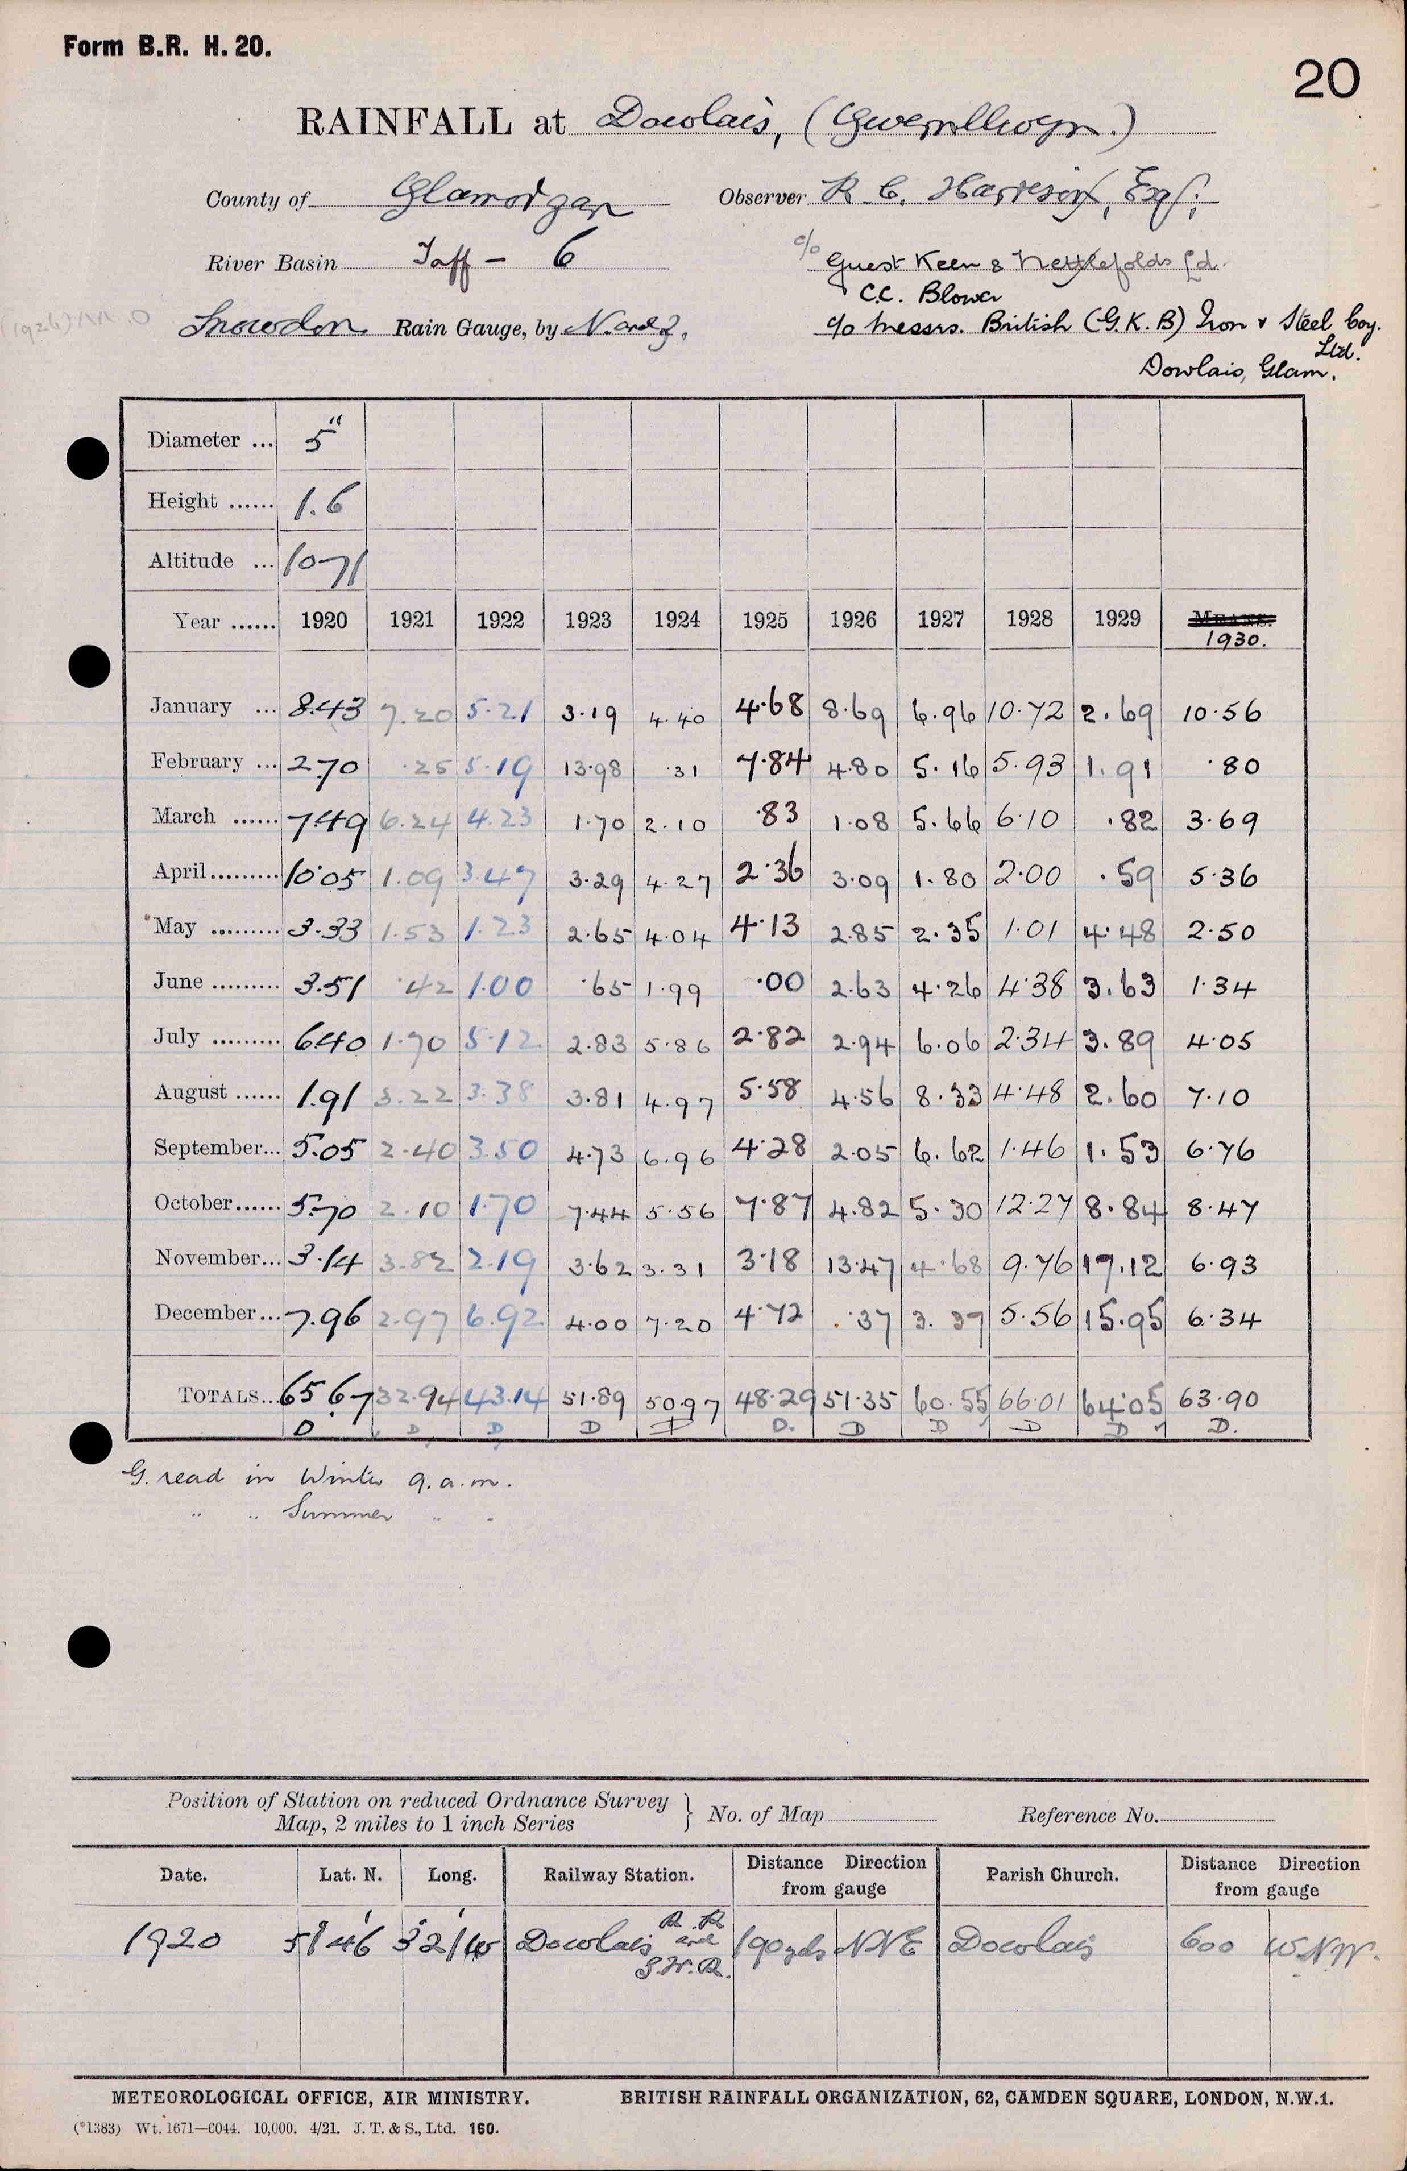 Form B.R. H. 20.
20
RAINFALL at Dowlais, (Gwernllwyn.)
County of Glamorgan Observer R. C. Harrison, Esq;
River Basin Taff - 6 c/o Guest Keen & Nettlefolds Ld.
C.C. Blower
Snowdon Rain Gauge, by N. and Z. c/o Messrs. British (G.K.B) Iron & Steel Coy. Ltd.
Dowlais, Glam.
Diameter ... 5"
Height ...... 1.6
Altitude ... 1071
Year ...... 1920 1921 1922 1923 1924 1925 1926 1927 1928 1929 MEANS. 1930.
January ... 8.43 7.20 5.21 3.19 4.40 4.68 8.69 6.96 10.72 2.69 10.56
February ... 2.70 .25 5.19 13.98 .31 7.84 4.80 5.16 5.93 1.91 .80
March ...... 7.49 6.24 4.23 1.70 2.10 .83 1.08 5.66 6.10 .82 3.69
April......... 10.05 1.09 3.47 3.29 4.27 2.36 3.09 1.80 2.00 .59 5.36
May ......... 3.33 1.53 1.23 2.65 4.04 4.13 2.85 2.35 1.01 4.48 2.50
June ......... 3.51 .42 1.00 .65 1.99 .00 2.63 4.26 4.38 3.63 1.34
July ......... 6.40 1.70 5.12 2.83 5.86 2.82 2.94 6.06 2.34 3.89 4.05
August ...... 1.91 3.22 3.38 3.81 4.97 5.58 4.56 8.33 4.48 2.60 7.10
September... 5.05 2.40 3.50 4.73 6.96 4.28 2.05 6.62 1.46 1.53 6.76
October...... 5.70 2.10 1.70 7.44 5.56 7.87 4.82 5.30 12.27 8.84 8.47
November... 3.14 3.82 2.19 3.62 3.31 3.18 13.47 4.68 9.76 17.12 6.93
December... 7.96 2.97 6.92 4.00 7.20 4.72 .37 3.37 5.56 15.95 6.34
TOTALS... 65.67 32.94 43.14 51.89 50.97 48.29 51.35 60.55 66.01 64.05 63.90
D D D D D D. D D D D D.
G. read in Winter 9.a.m.
" " Summer " "
Position of Station on reduced Ordnance Survey Map, 2 miles to 1 inch Series } No. of Map Reference No.
Date. Lat. N. Long. Railway Station. Distance Direction from gauge Parish Church. Distance Direction from gauge
1920 51° 46' 3° 21' W Dowlais 190 yds NNE Dowlais 600 W.N.W.
METEOROLOGICAL OFFICE, AIR MINISTRY. BRITISH RAINFALL ORGANIZATION, 62, CAMDEN SQUARE, LONDON, N.W.1.
(*1383) Wt. 1671—6044. 10,000. 4/21. J. T. & S., Ltd. 160.